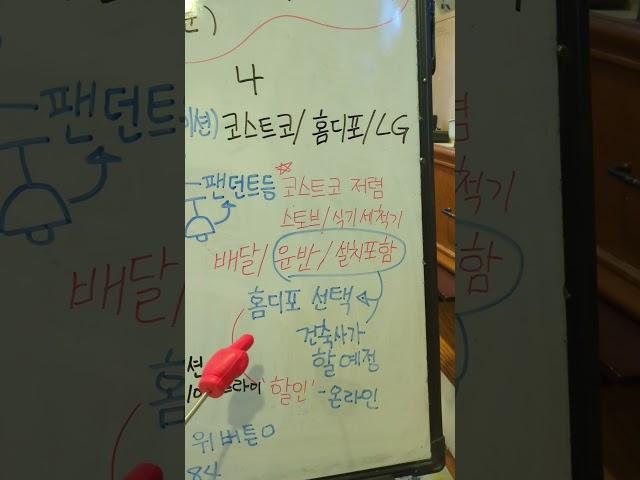 4
코스트코/ 홈디포/ LG
팬던트등 ☆코스트코 저렴
스토브/식기세척기
배달/ 운반/ 설치포함
홈디포 선택
건축사가
할 예정
션
'할인' - 온라인
위 버튼 0
84